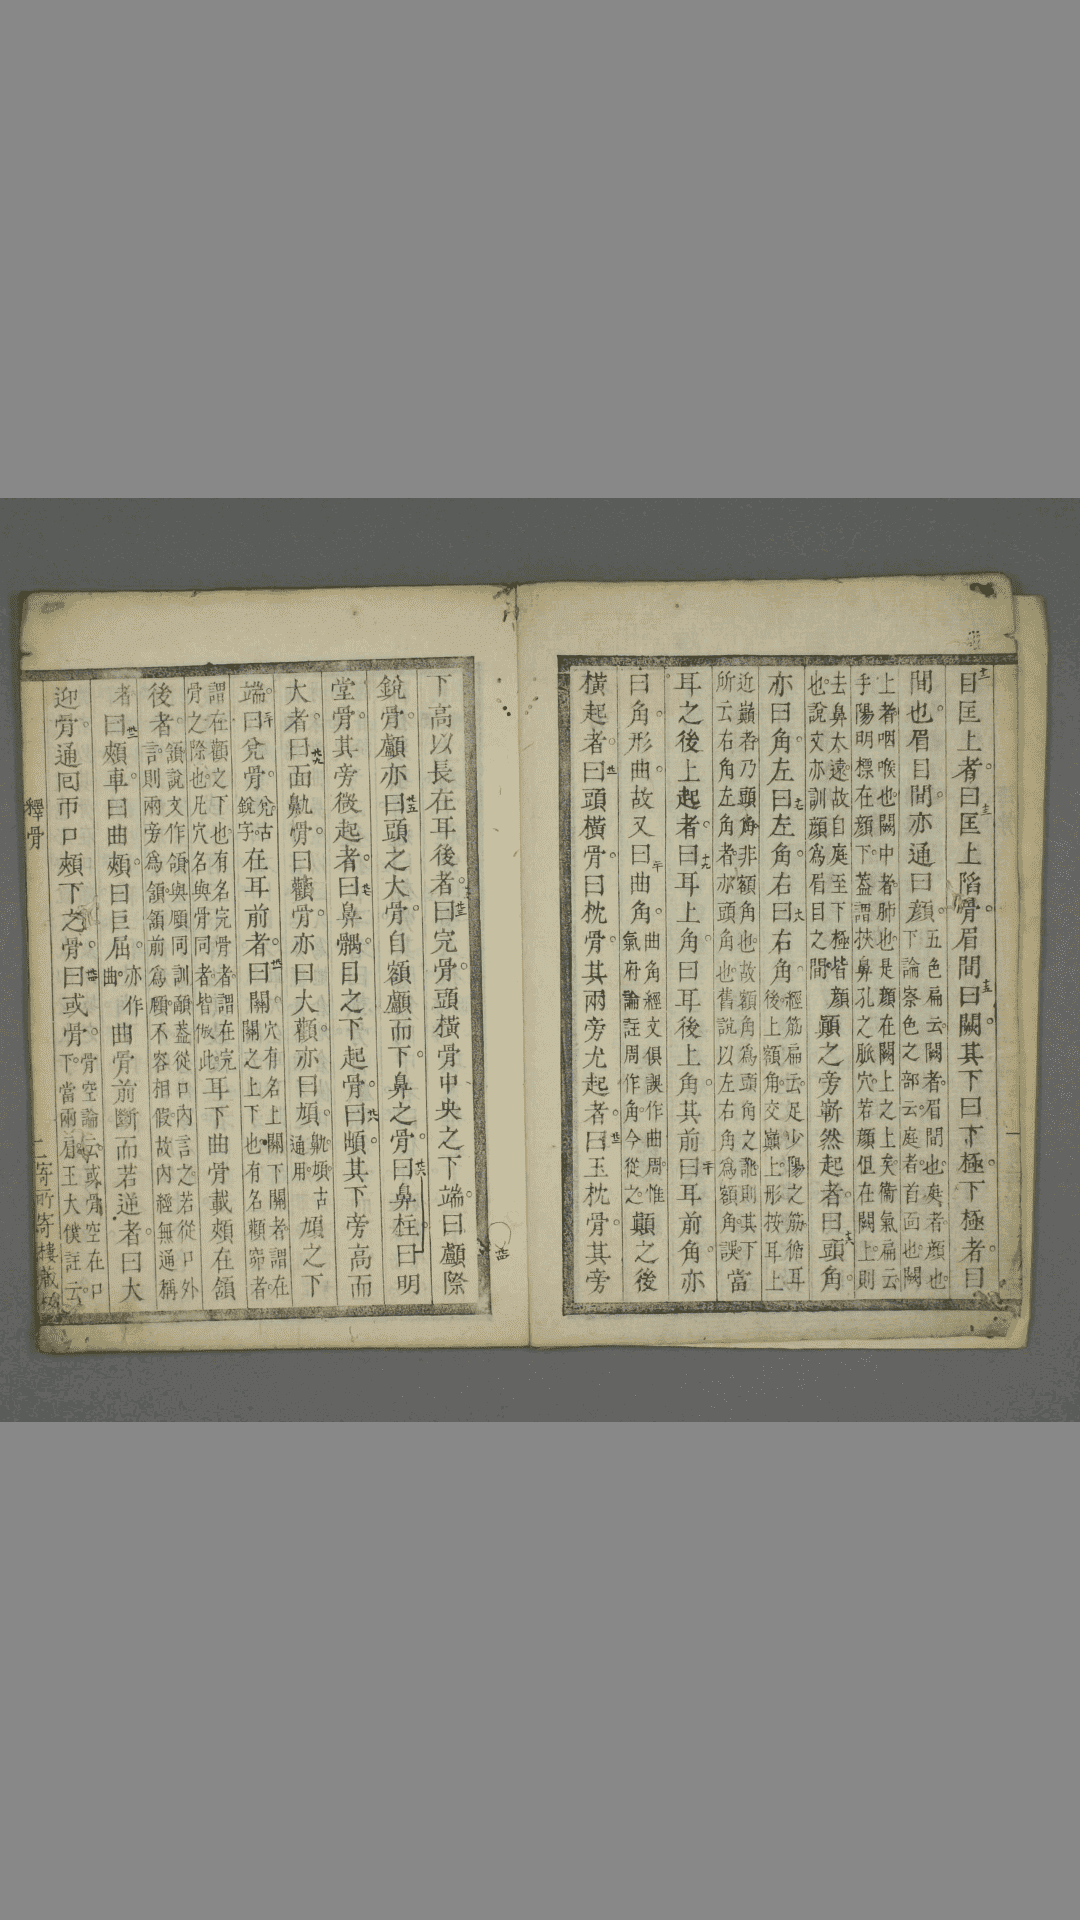 目匡上者曰匡上陷骨眉間曰闕其下曰下極下極者曰
間也眉目間亦通曰顔五色扁云闕者眉間也庭者顔也
下論察色之部云庭者首面也闕
上者咽喉也闕中者肺也是顔在闕上之上矣衞氣扁云
手陽明標在顔下葢謂挾鼻孔之脈穴若顔但在闕上則
去鼻太遠故自庭至下極皆顔
也說文亦訓顔爲眉目之間
顚之旁嶄然起者曰頭角
亦曰角左曰左角右曰右角經筋扁云足少陽之筋循耳
後上額角交巔上形按耳上
近巔者乃頭角非額角也故額角爲頭角之訛則其下
所云右角左角者亦頭角也舊說以左右角爲額角誤
當
耳之後上起者曰耳上角曰耳後上角其前曰耳前角亦
曰角形曲故又曰曲角曲角經文俱誤作曲周惟
氣府論註周作角今從之
顚之後
橫起者曰頭橫骨曰枕骨其兩旁尤起者曰玉枕骨其旁
下高以長在耳後者曰完骨頭橫骨中央之下端曰顱際
銳骨顱亦曰頭之大骨自額顱而下鼻之骨曰鼻柱曰明
堂骨其旁微起者曰鼻𩩬目之下起骨曰䪼其下旁高而
大者曰面鼽骨曰顴骨亦曰大顴亦曰頄鼽頄古
通用
頄之下
端曰兌骨兌古
銳字
在耳前者曰關穴有名上關下關者謂在
關之上下也有名顴窌者
謂在顴之下也有名完骨者謂在完
骨之際也凡穴名與骨同者皆倣此
耳下曲骨載頰在頷
後者頷說文作頜與頤同訓顄葢從口內言之若從口外
言則兩旁爲頷頷前爲頤不容相假故內經無通稱
者曰頰車曰曲頰曰巨屈亦作
曲
曲骨前斷而若逆者曰大
迎骨通回帀口頰下之骨曰或骨骨空論云或骨空在口
下當兩肩王大僕註云
釋骨
二
寄所寄樓藏板